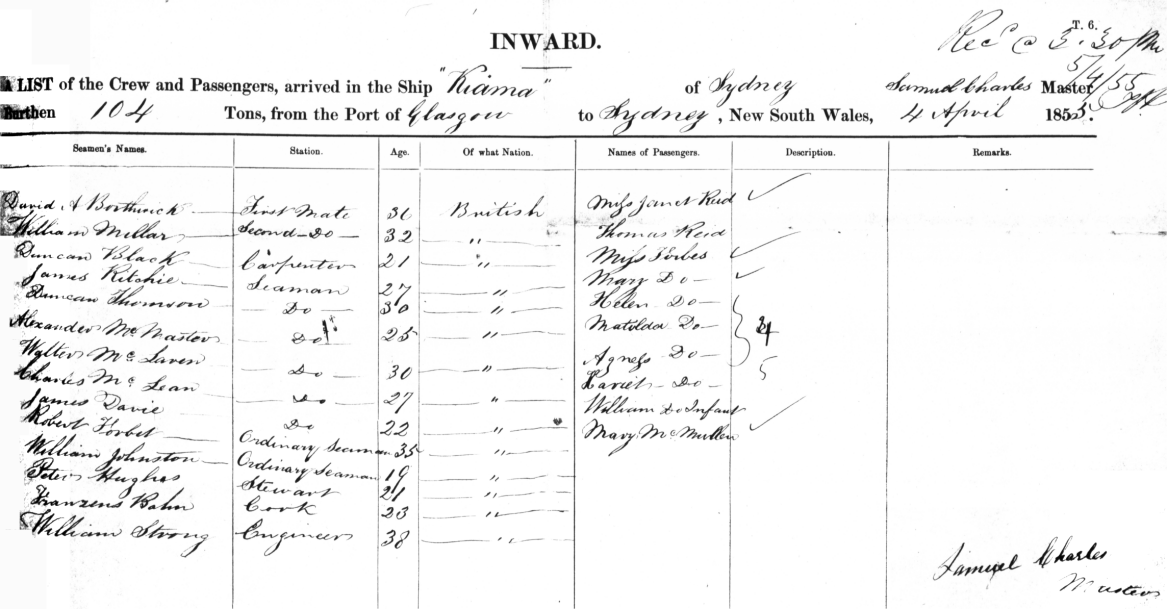 T. 6.
INWARD.
Rec'd @ 3.30 PM
5/4/55
A LIST of the Crew and Passengers, arrived in the Ship "Kiama" of Sydney Samuel Charles Master
Burthen 104 Tons, from the Port of Glasgow to Sydney, New South Wales, 4 April 1855.
Seamen's Names. Station. Age. Of what Nation. Names of Passengers. Description. Remarks.
David A Borthwick First Mate 31 British Miss Janet Reid
William Millar Second Do 32 " Thomas Reid
Duncan Black Carpenter 21 " Miss Forbes
James Ritchie Seaman 27 " Mary Do
Duncan Thomson Do 30 " Helen Do
Alexander McMaster Do 25 " Matilda Do
Walter McLaren Do 30 " Agness Do
Charles McLean Do 27 " Hariet Do
James Davie Do 22 " William Do Infant
Robert Forbet Ordinary Seaman 35 " Mary McMullen
William Johnston Ordinary Seaman 19 "
Peter Hughes Stewart 21 "
Franzens Bahn Cook 23 "
William Strong Engineer 38 "
4
5
Samuel Charles
Master